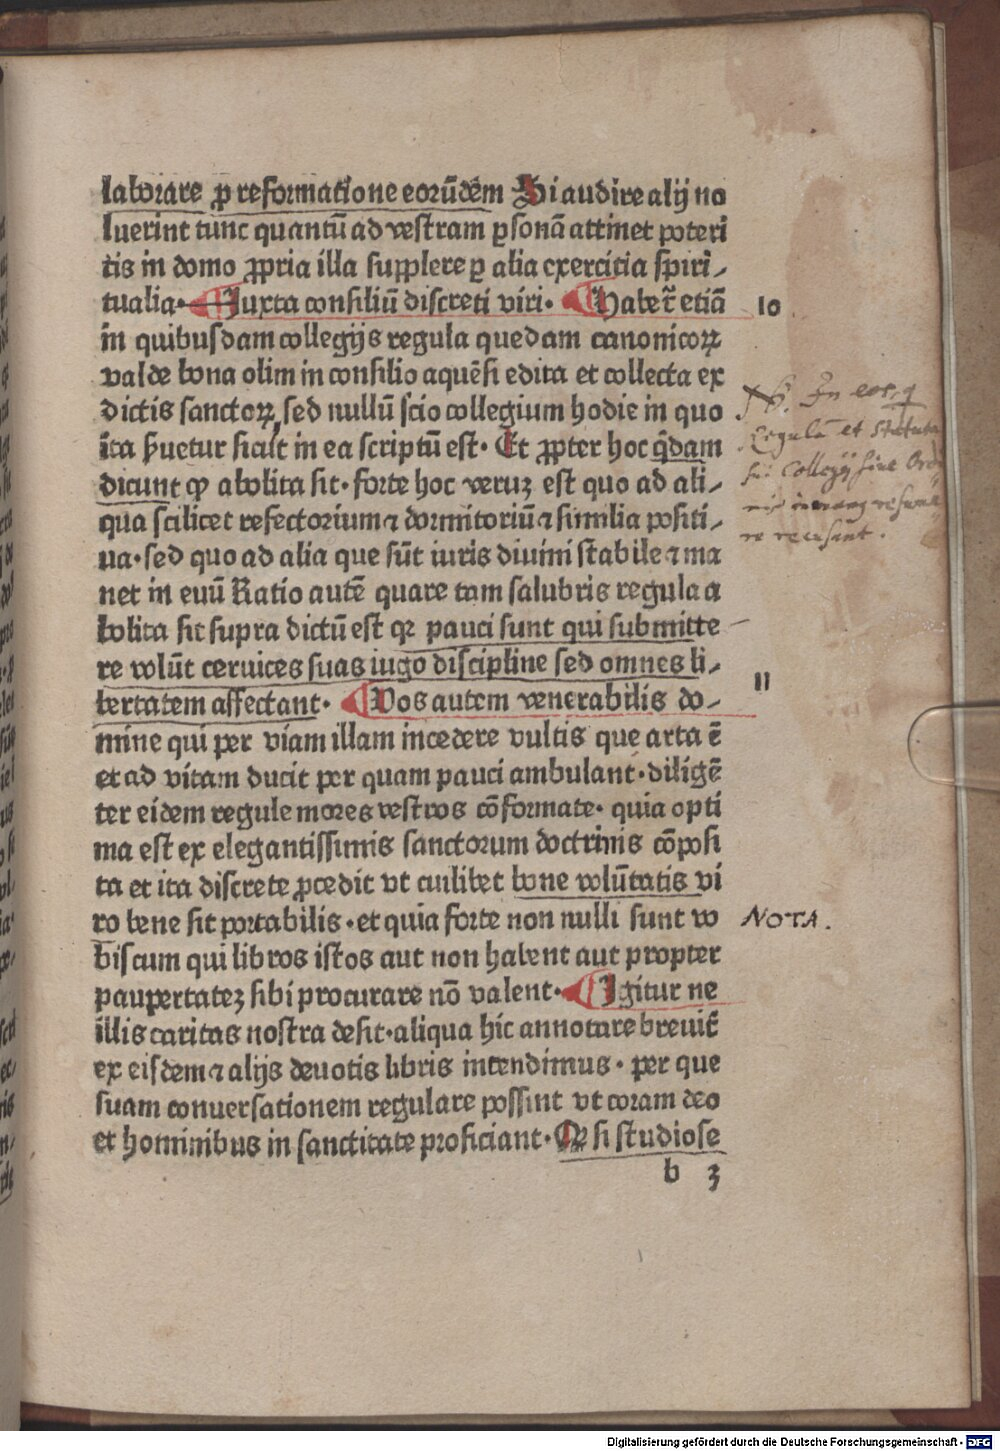 laborare ꝓ reformatione eorūdem Si audire alij no
luerint tunc quantū ad vestram ꝑsonā attinet poteri
tis in domo ꝓpria illa supplere ꝑ alia exercitia spiri⸗
tualia· Juxta consiliū discreti viri· Habet᷑ etiā
10
in quibusdam collegijs regula quedam canonicoꝝ
valde bona olim in consilio aquēsi edita et collecta ex
dictis sanctoꝝ, sed nullū scio collegium hodie in quo
ita ẜuetur sicut in ea scriptū est· Et ꝓpter hoc q̄dam
dicunt ꝙ abolita sit· forte hoc veruꝫ est quo ad ali⸗
qua scilicet refectorium ⁊ dormitoriū ⁊ similia positi⸗
ua· sed quo ad alia que sūt iuris diuini stabile ⁊ ma
net in euū Ratio autē quare tam salubris regula a
bolita sit supra dictū est qꝛ pauci sunt qui submitte
re volūt ceruices suas iugo discipline sed omnes li⸗
bertatem affectant· Vos autem venerabilis do⸗
11
mine qui per viam illam incedere vultis que arta ē
et ad vitam ducit per quam pauci ambulant· diligē
ter eidem regule mores vestros cōformate· quia opti
ma est ex elegantissimis sanctorum doctrinis cōposi
ta et ita discrete ꝓcedit vt cuilibet bone volūtatis vi
ro bene sit portabilis· et quia forte non nulli sunt vo
NOTA.
biscum qui libros istos aut non habent aut propter
paupertateꝫ sibi procurare nō valent· Igitur ne
illis caritas nostra desit· aliqua hic annotare breuit᷑
ex eisdem ⁊ alijs deuotis libris intendimus· per que
suam conuersationem regulare possint vt coram deo
et hominibus in sanctitate proficiant· Qꝫ si studiose
b 3
In eos, q
Regulā et Statuta
Collegij siue Ord
recusant.
Digitalisierung gefördert durch die Deutsche Forschungsgemeinschaft - DFG